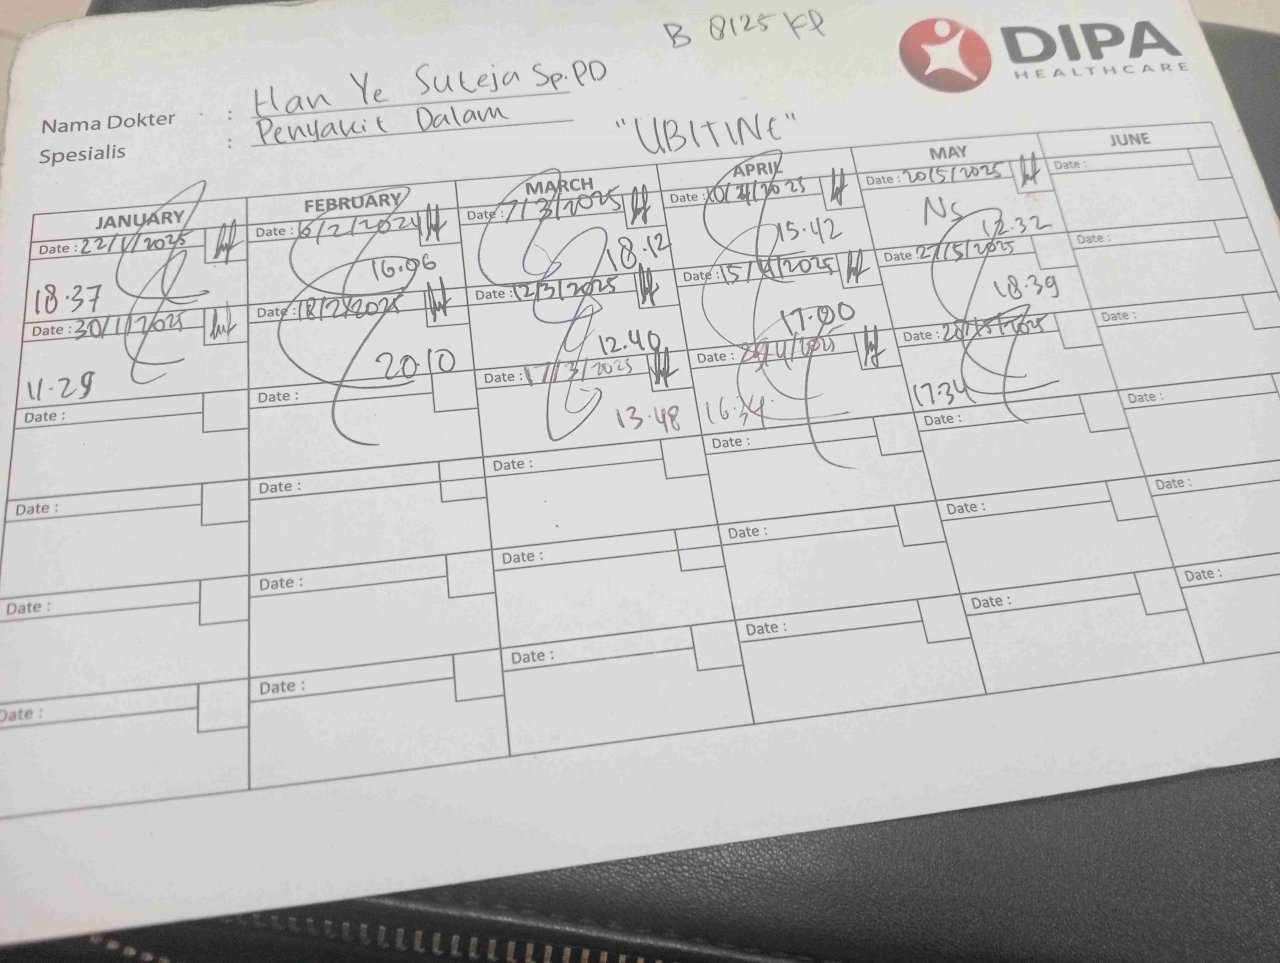 B 8125 KP
DIPA
HEALTHCARE
Nama Dokter : Han Ye Suteja Sp.PD
Spesialis : Penyakit Dalam
"UBITINE"
JANUARY FEBRUARY MARCH APRIL MAY JUNE
Date : 22/1/2025 Date : 6/2/2024 Date : 7/3/2025 Date : 10/4/2025 Date : 20/5/2025 Date :
18.37 16.06 18.12 15.42 Ns 12.32
Date : 30/1/2025 Date : 18/2/2025 Date : 12/3/2025 Date : 15/4/2025 Date : 27/5/2025 Date :
11.29 20.10 12.40 17.00 18.39
Date : Date : Date : 17/3/2025 Date : /4/2025 Date : Date :
13.48 16.34 17.34
Date : Date : Date : Date : Date : Date :
Date : Date : Date : Date : Date : Date :
Date : Date : Date : Date : Date : Date :